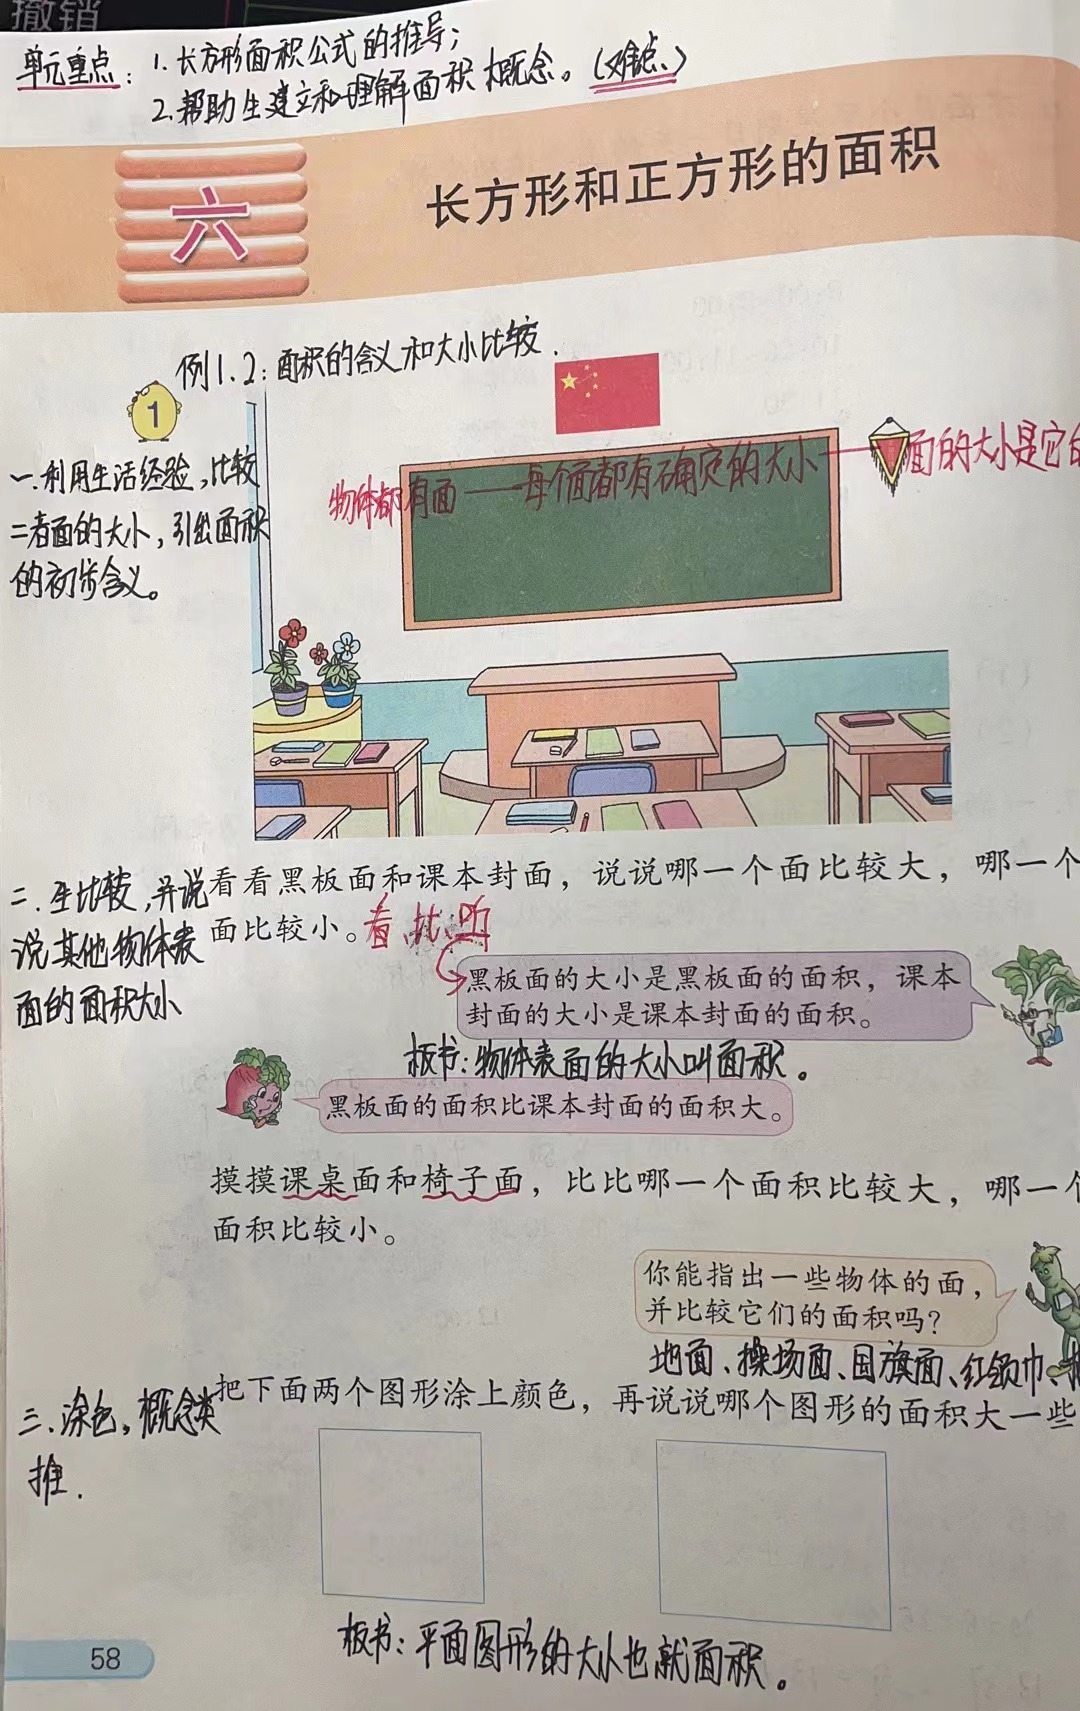 撤销
单元重点：1.长方形面积公式的推导；
2.帮助生建立和理解面积概念。（难点、）
六
长方形和正方形的面积
例1.2：面积的含义和大小比较.
1
一.利用生活经验，比较
二者面的大小，引出面积
的初步含义。
物体都有面——每个面都有确定的大小——面的大小是它的
二.生比较，并说
说其他物体表
面的面积大小
看看黑板面和课本封面，说说哪一个面比较大，哪一个
面比较小。看、比、听
黑板面的大小是黑板面的面积，课本
封面的大小是课本封面的面积。
板书：物体表面的大小叫面积。
黑板面的面积比课本封面的面积大。
摸摸课桌面和椅子面，比比哪一个面积比较大，哪一个
面积比较小。
你能指出一些物体的面，
并比较它们的面积吗？
地面、操场面、国旗面、红领巾、
三.涂色，概念类
推.
把下面两个图形涂上颜色，再说说哪个图形的面积大一些
板书：平面图形的大小也就面积。
58